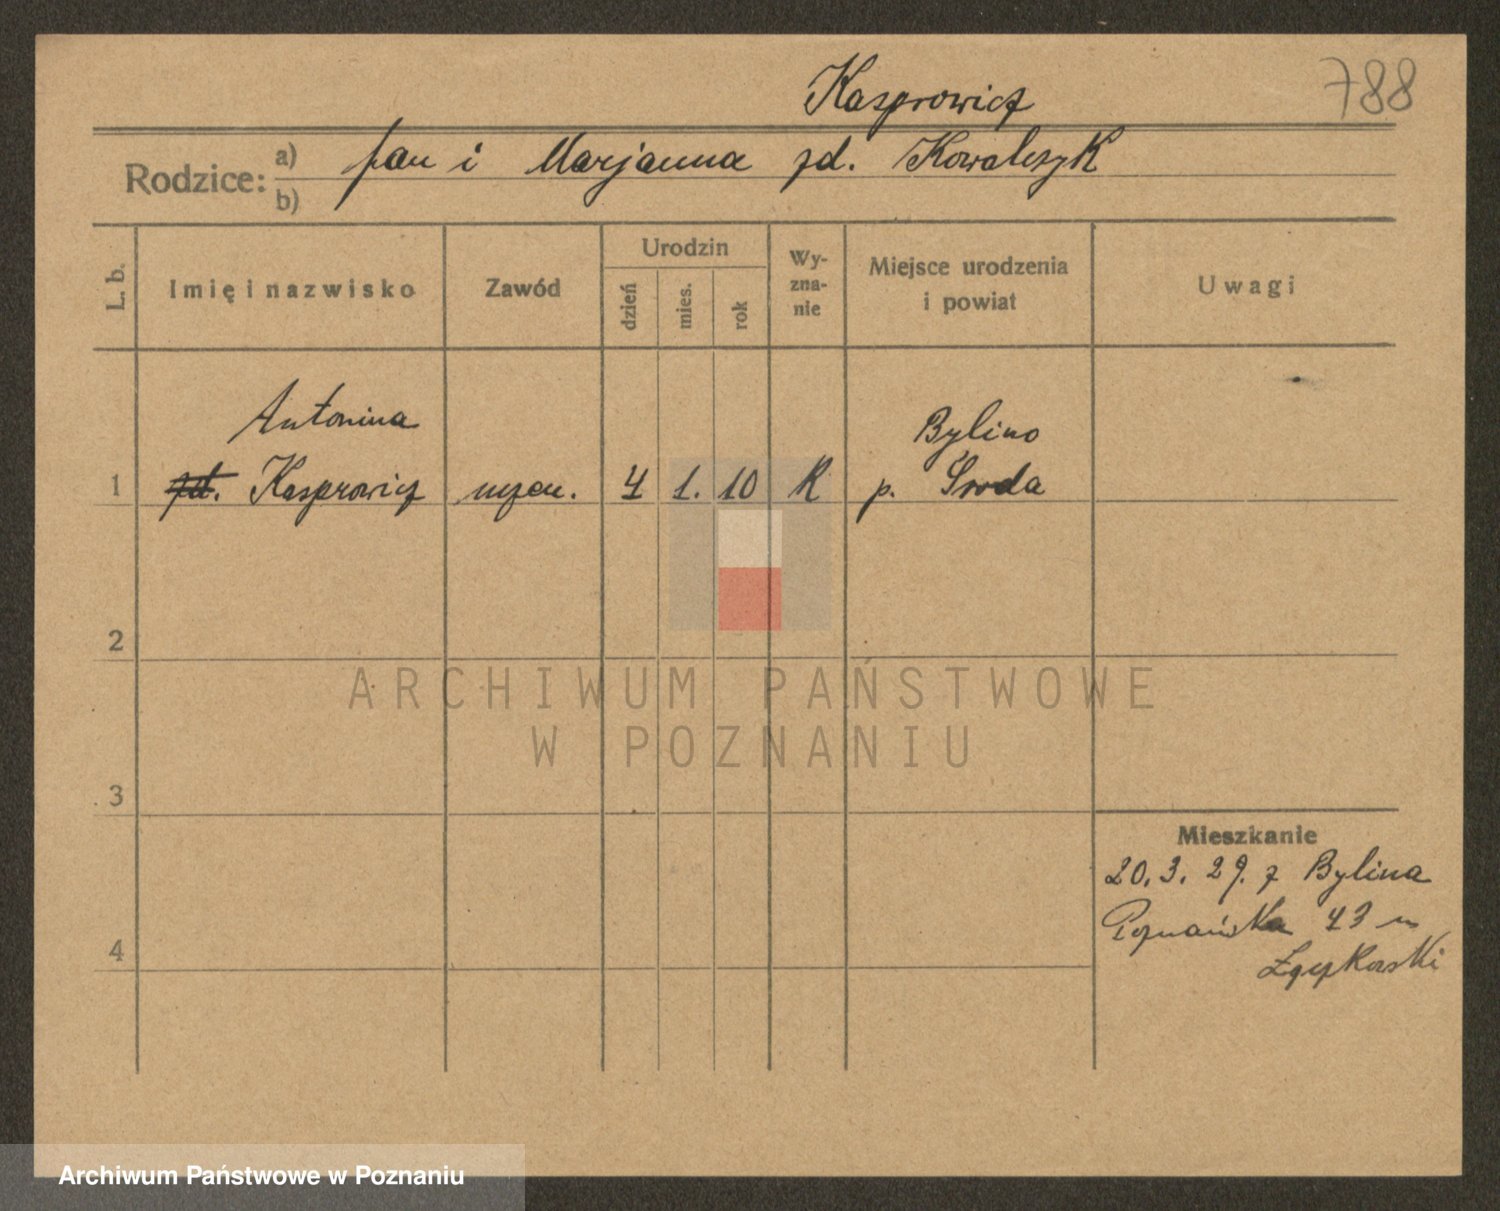 Kasprowicz
788
Rodzice: a) Jan i Marjanna zd. Kowalczyk
b)
L. b.
Imię i nazwisko
Zawód
Urodzin
dzień
mies.
rok
Wy-
zna-
nie
Miejsce urodzenia
i powiat
Uwagi
Antonina
Bylino
1 zd. Kasprowicz uczen. 4 1. 10 K p. Środa
2
3
4
Mieszkanie
20. 3. 29. z Bylina
Poznańska 43 u
ARCHIWUM PAŃSTWOWE
W POZNANIU
Archiwum Państwowe w Poznaniu